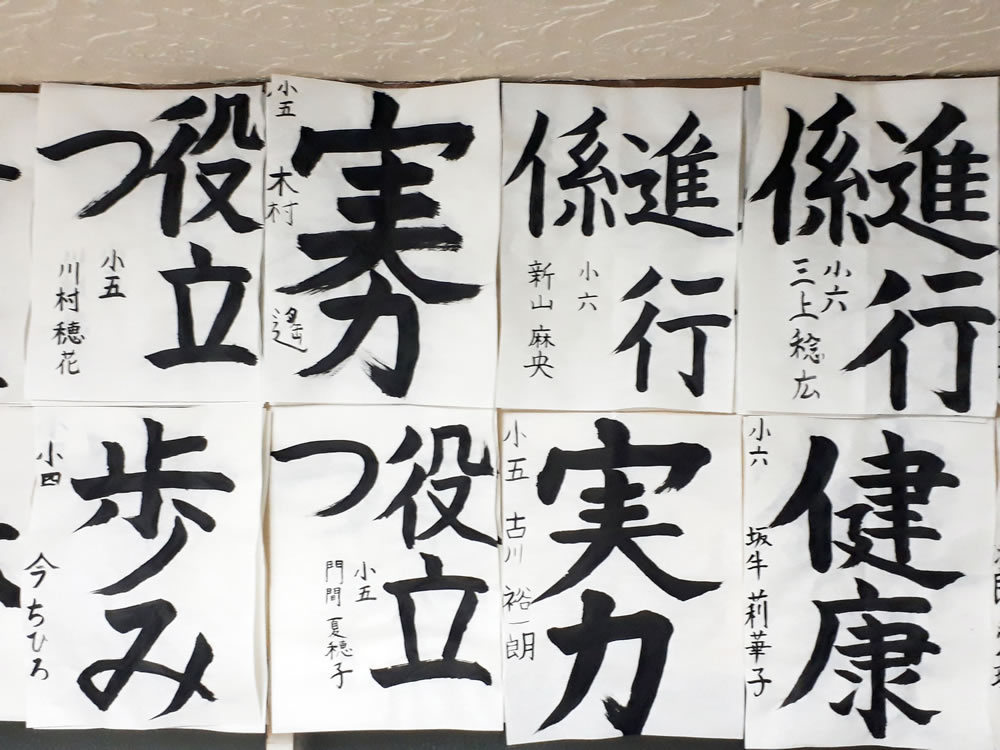 役立
つ
小五
川村穂花
実力
小五 木村 遙
進行
係
小六
新山麻央
進行
係
小六
三上稔広
歩み
小四 今ちひろ
役立
つ
小五
門間夏穂子
実力
小五 古川 裕一朗
健康
小六 坂牛 莉華子